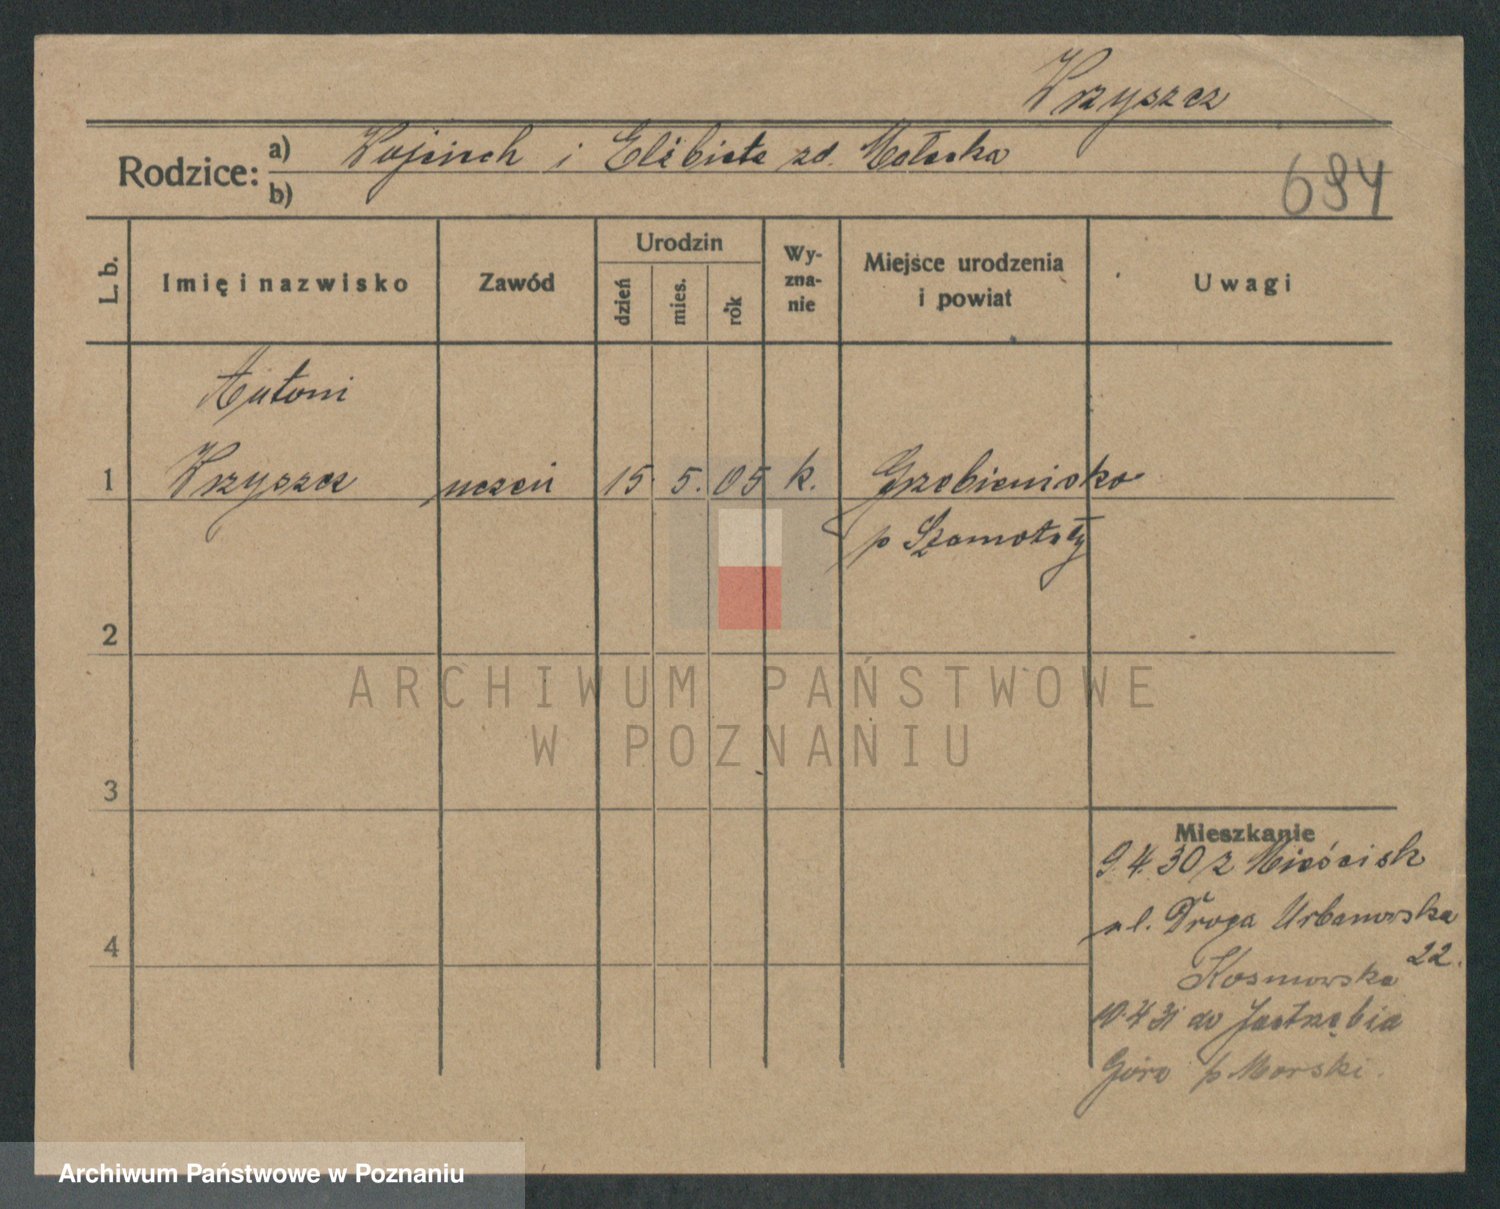 Wrzyszcz
Rodzice: a) Wojciech i Elżbieta zd. Małecka
b)
694
L. b. Imię i nazwisko Zawód Urodzin dzień mies. rok Wy-zna-nie Miejsce urodzenia i powiat Uwagi
Antoni
1 Wrzyszcz uczeń 15. 5. 05 k. Grzebienisko
p Szamotuły
2
ARCHIWUM PAŃSTWOWE
W POZNANIU
3
Mieszkanie
9.4.30 z Mieścisk
ul. Droga Urbanowska
22.
4
Kosmowska
10.4.31 do Jastrzębia
Góra p Morski.
Archiwum Państwowe w Poznaniu